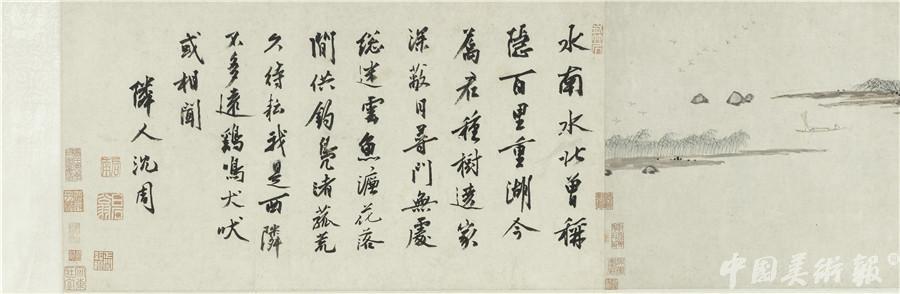 水南水北曾稱
隱百里重湖今
屬君種樹遶家
深蔽日尋門無處
總迷雲魚灘花落
閒供釣鳧渚菰荒
久待耘我是西隣
不多遠鷄鳴犬吠
或相聞
隣人沈周
中国美術報